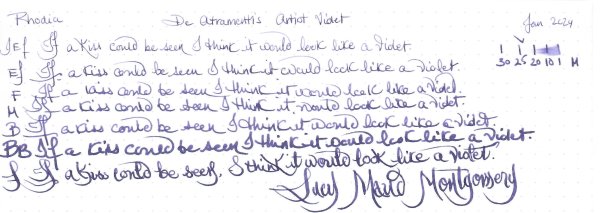 Rhodia De Atramentis Artist Violet Jan 2024
EEf If a kiss could be seen I think it would look like a violet.
Ef If a kiss could be seen I think it would look like a violet.
F If a kiss could be seen I think it would look like a violet.
M If a kiss could be seen I think it would look like a violet.
B If a kiss could be seen I think it would look like a violet.
BB If a kiss could be seen I think it would look like a violet.
f If a kiss could be seen, I think it would look like a violet.
Lucy Maud Montgomery
30 25 20 10 1 M